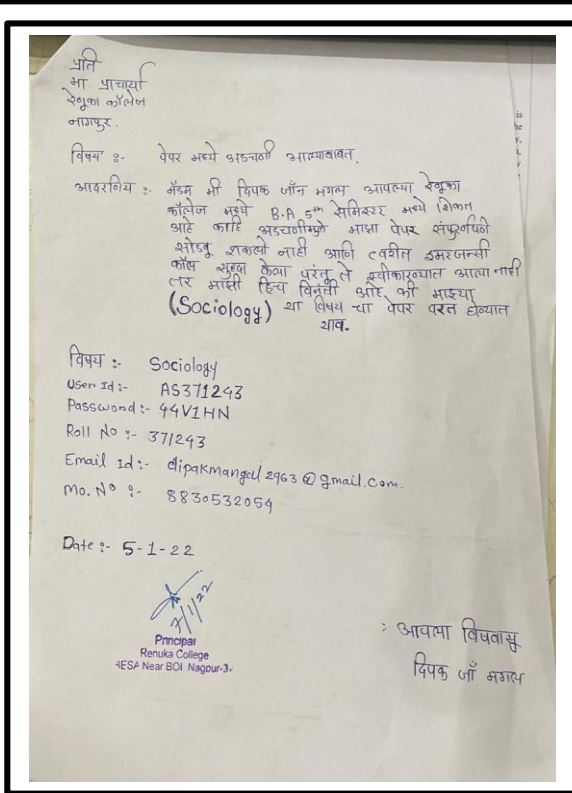 प्रति
मा प्राचार्या
रेनूका कॉलेज
नागपूर.
विषय :- पेपर मध्ये अडचणी आल्याबाबत.
आदरनिय :- मॅडम मी दिपक जॉन मंगल आपल्या रेनूका
कॉलेज मध्ये B.A 5th सेमिस्टर मध्ये शिकत
आहे काहि अडचणीमुळे माझा पेपर संपुर्णपणे
सोडवू शकलो नाही आणि त्वरीत इमरजन्सी
कॉल सुद्धा केला परंतू ते स्वीकारन्यात आला नाही
तर माझी हिच विनंती आहे की माझ्या
(Sociology) या विषय चा पेपर परत घेन्यात
याव.
विषय :- Sociology
User Id :- AS371243
Password :- 44V1HN
Roll No :- 371243
Email Id :- dipakmangal2963@gmail.com.
Mo. No :- 8830532054
Date :- 5-1-22
7/1/22
Principal
Renuka College
RESA Near BOI Nagpur-3
: आपला विषवासु
दिपक जॉ मंगल